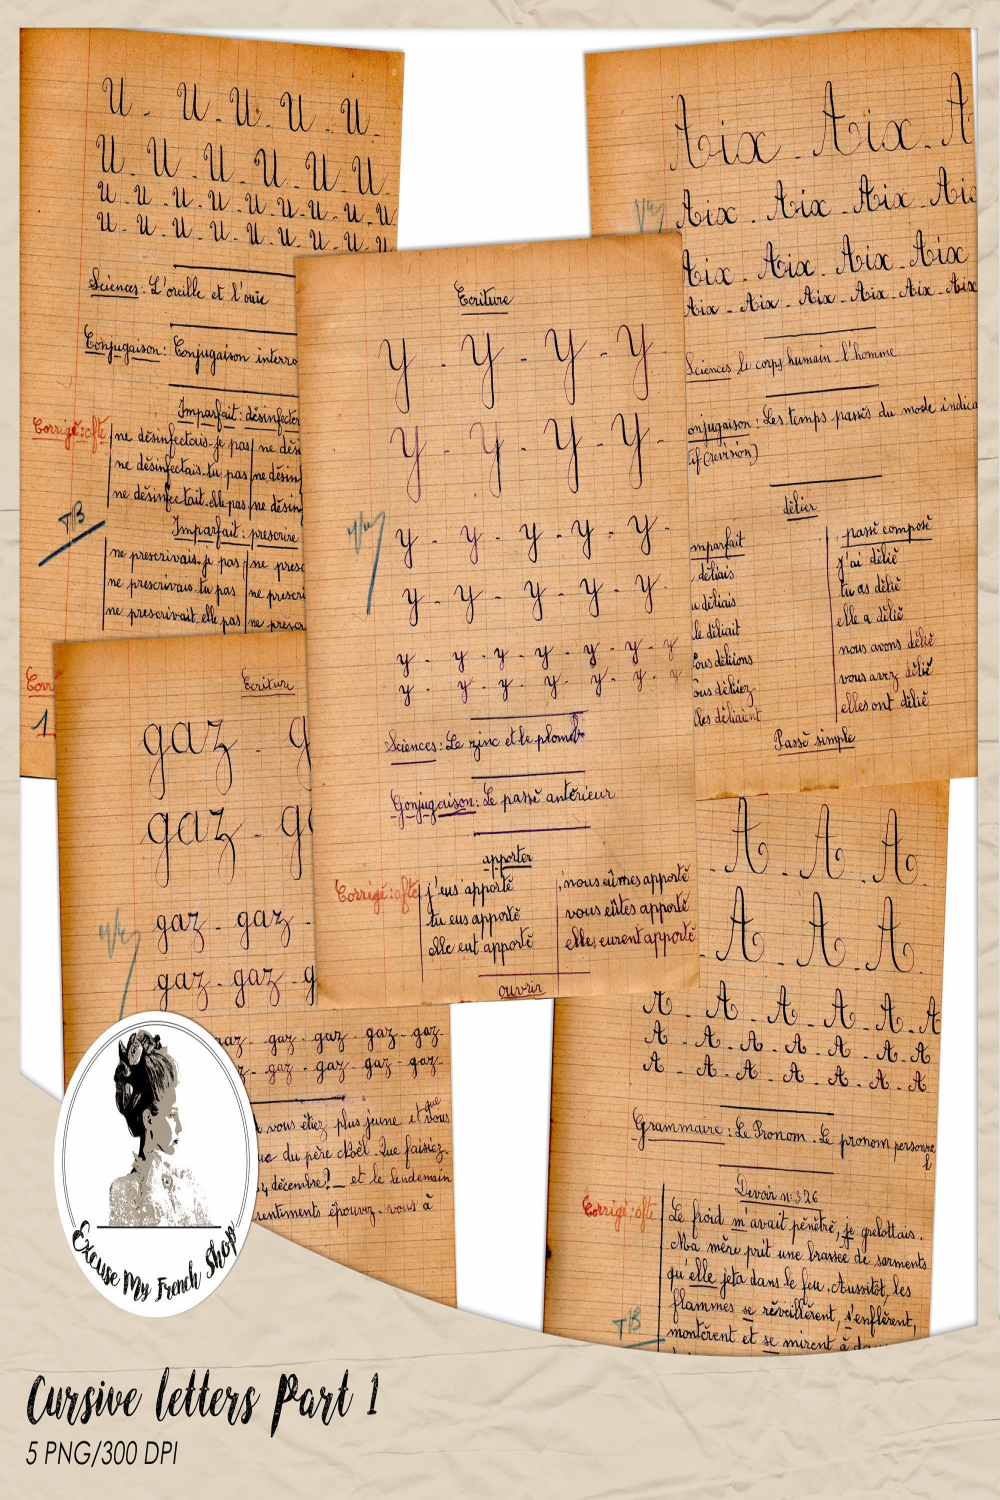 U - U - U - U - U -
U - U - U - U - U - U -
U - U - U - U - U - U - U - U - U
U - U - U - U - U - U - U - U - U
Sciences : L'oreille et l'ouïe
Conjugaison : Conjugaison interro
Imparfait : désinfecter
Corrigé : ofte
ne désinfectais-je pas
ne désinfectais-tu pas
ne désinfectait-elle pas
TB
Imparfait : prescrire
ne prescrivais-je pas
ne prescrivais-tu pas
ne prescrivait-elle pas
Corr
1
Aix - Aix - A
Aix - Aix - Aix - Ai
Aix - Aix - Aix - Aix
Aix - Aix - Aix - Aix - Aix - Aix
Sciences le corps humain - l'homme
onjugaison : Les temps passés du mode indica
tif (revision)
délier
mparfait
déliais
u déliais
lle déliait
ous déliions
ous déliiez
lles déliaient
passé composé
j'ai délié
tu as délié
elle a délié
nous avons délié
vous avez délié
elles ont délié
Passé simple
Ecriture
y - y - y - y
y - y - y - y -
y - y - y - y - y
y - y - y - y - y -
y - y - y - y - y - y - y
y - y - y - y - y - y - y
Sciences : Le zinc et le plomb
Conjugaison : Le passé antérieur
apporter
Corrigé : ofte
j'eus apporté
tu eus apporté
elle eut apporté
nous eûmes apporté
vous eûtes apporté
elles eurent apporté
ouvrir
Ecriture
gaz - g
gaz - ga
gaz - gaz -
gaz - gaz - g
gaz - gaz - gaz - gaz - gaz
gaz - gaz - gaz - gaz -
vous étiez plus jeune et que vous
du père Noël. Que faisiez-
24 décembre ? _ et le lendemain
sentiments éprouvez-vous à
A - A - A
A - A - A
A - A - A - A - A
A - A - A - A - A - A - A
A - A - A - A - A - A - A
Grammaire : Le Pronom - Le pronom personne
l
Devoir n: 326
Corrigé : ofte
Le froid m'avait pénétré, je grelottais.
Ma mère prit une brassée de sarments
qu'elle jeta dans le feu. Aussitôt, les
flammes se réveillèrent, s'enflèrent,
TB
montèrent et se mirent à
Excuse My French Shop
Cursive letters Part 1
5 PNG/300 DPI